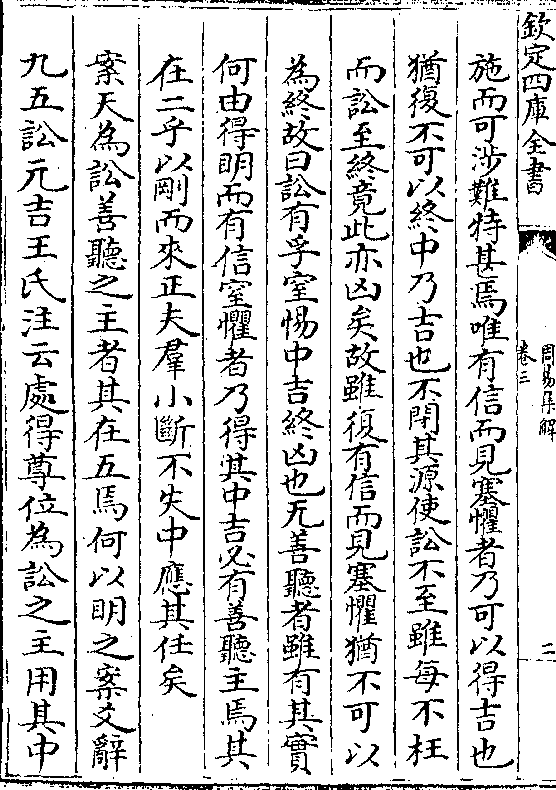 欽定四庫全書
周易集解
卷三
二
施而可涉難特甚焉唯有信而見塞懼者乃可以得吉也
猶復不可以終中乃吉也不閉其源使訟不至雖每不枉
而訟至終竟此亦凶矣故雖復有信而見塞懼猶不可以
為終故曰訟有孚窒惕中吉終凶也无善聽者雖有其實
何由得明而有信窒懼者乃得其中吉必有善聽主焉其
在二乎以剛而來正夫羣小斷不失中應其任矣
案天為訟善聽之主者其在五焉何以明之案爻辭
九五訟元吉王氏注云處得尊位為訟之主用其中